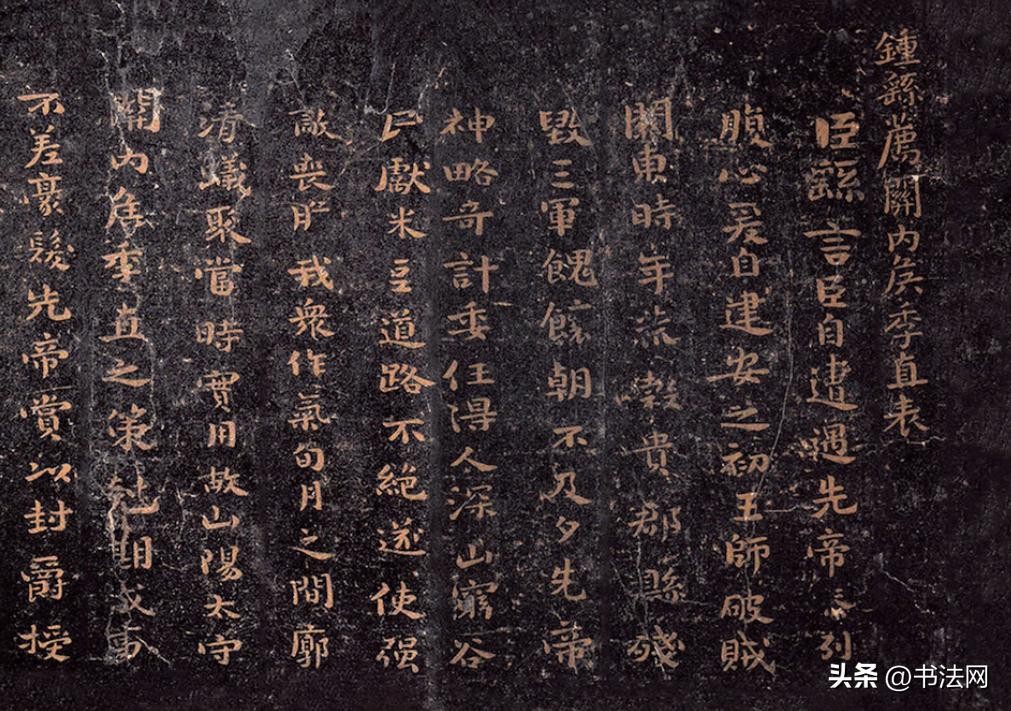 鍾繇薦關内侯季直表
臣繇言臣自遭遇先帝忝列
腹心爰自建安之初王師破賊
關東時年荒穀貴郡縣殘
毀三軍餽饟朝不及夕先帝
神略奇計委任得人深山窮谷
民獻米豆道路不絕遂使强
敵喪膽我衆作氣旬月之間廓
清蟻聚當時實用故山陽太守
關内侯季直之策剋期成事
不差豪髮先帝賞以封爵授
头条 @书法网